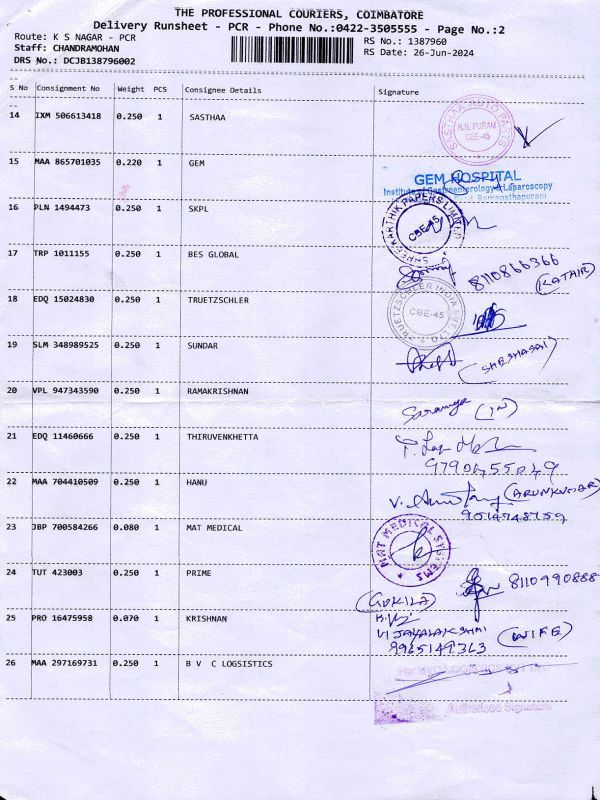 THE PROFESSIONAL COURIERS, COIMBATORE
Delivery Runsheet - PCR - Phone No.:0422-3505555 - Page No.:2
Route: K S NAGAR - PCR
RS No.: 1387960
Staff: CHANDRAMOHAN
RS Date: 26-Jun-2024
DRS No.: DCJB138796002
S No Consignment No Weight PCS Consignee Details Signature
14 IXM 506613418 0.250 1 SASTHAA
SASTHAA AUTO PARTS
R.N. PURAM
CBE-45
15 MAA 865701035 0.220 1 GEM
GEM HOSPITAL
Institute of Gastroenterology & Laparoscopy
Ramanathapuram
16 PLN 1494473 0.250 1 SKPL
SHREEKARTHIK PAPERS LIMITED
CBE-45
17 TRP 1011155 0.250 1 BES GLOBAL
8110866366
18 EDQ 15024830 0.250 1 TRUETZSCHLER
TRUETZSCHLER INDIA PVT. LTD.
CBE-45
19 SLM 348989525 0.250 1 SUNDAR
(SHESHASAI)
20 VPL 947343590 0.250 1 RAMAKRISHNAN
Saramya (IN)
21 EDQ 11460666 0.250 1 THIRUVENKHETTA
22 MAA 704410509 0.250 1 HANU
(ARUNKUMAR)
23 JBP 700584266 0.080 1 MAT MEDICAL
MAT MEDICAL SYSTEMS
24 TUT 423003 0.250 1 PRIME
8110990888
(GOKILA)
25 PRO 16475958 0.070 1 KRISHNAN
VIJAYALAKSHMI (WIFE)
9965149363
26 MAA 297169731 0.250 1 B V C LOGSISTICS
Authorised Signature